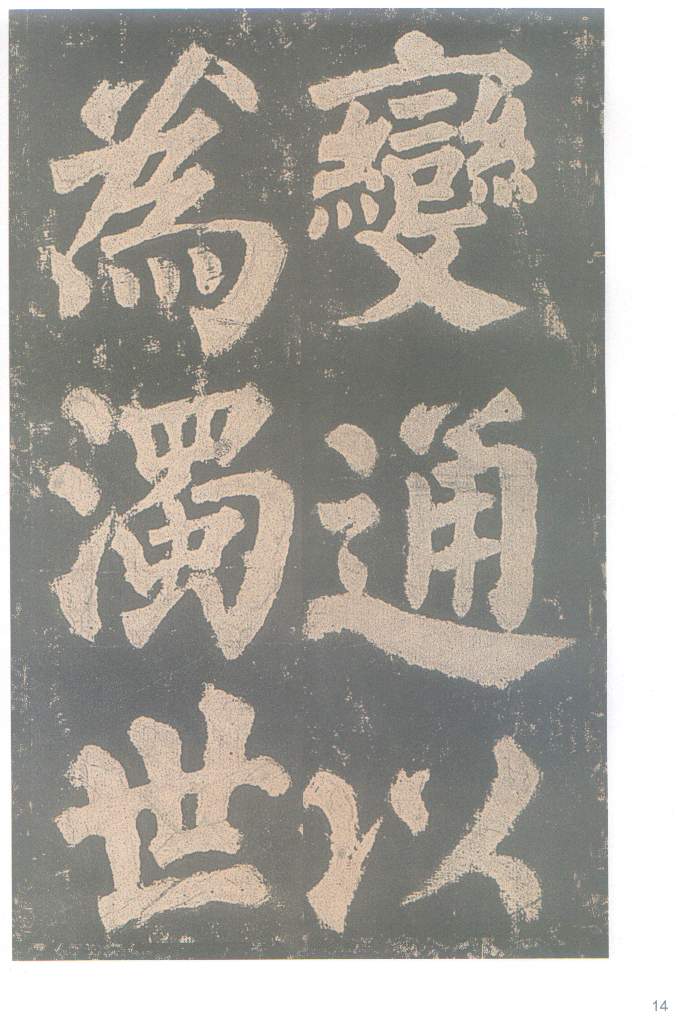 變通以
為濁世
14